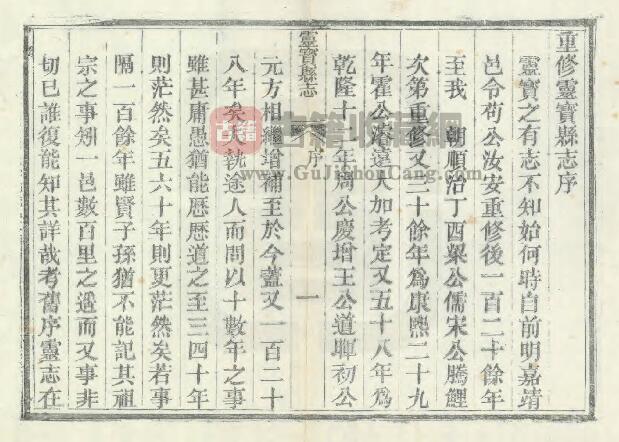 重修靈寶縣志序
靈寶之有志不知始何時自前明嘉靖
邑令苟公汝安重修後一百二十餘年
至我 朝順治丁酉梁公儒宋公騰鯉
次第重修又三十餘年為康熙二十九
年霍公濬遠大加考定又五十八年為
乾隆十二年周公慶增王公道暉初公
靈寶縣志 序 一
元方相繼增補至於今蓋又一百二十
八年矣夫執途人而問以十數年之事
雖甚庸愚猶能歷歷道之至三四十年
則茫然矣五六十年則更茫然矣若事
隔一百餘年雖賢子孫猶不能記其祖
宗之事矧一邑數百里之遥而又事非
切已誰復能知其詳哉考舊序靈志在
古籍 古籍收藏網
www.GuJiShouCang.com